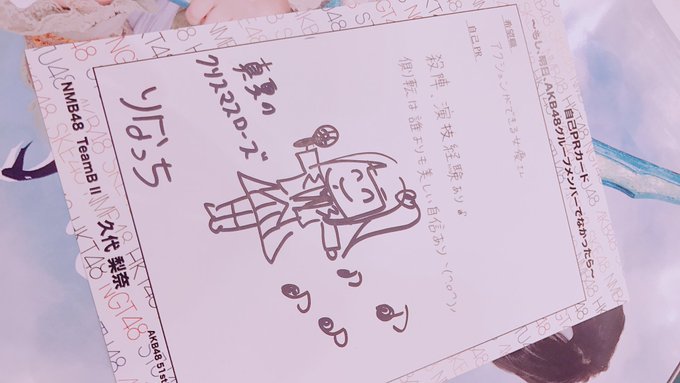 自己PRカード
〜もし、明日、AKB48グループメンバーでなかったら〜
希望職 アクションができる女優さん
自己PR
殺陣、演技経験あり
側転は誰よりも美しい自信あり
真夏の
クリスマスローズ
りなっち
NMB48 TeamBⅡ 久代 梨奈
AKB48 51st